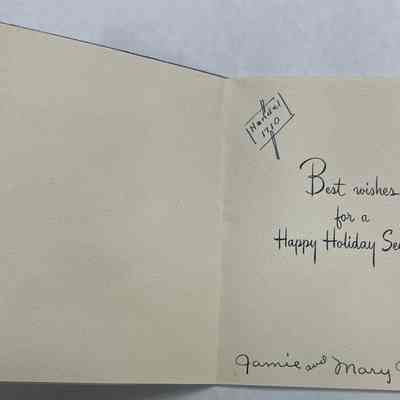 Handel
1710
Best wishes
for a
Happy Holiday Se
Jamie and Mary